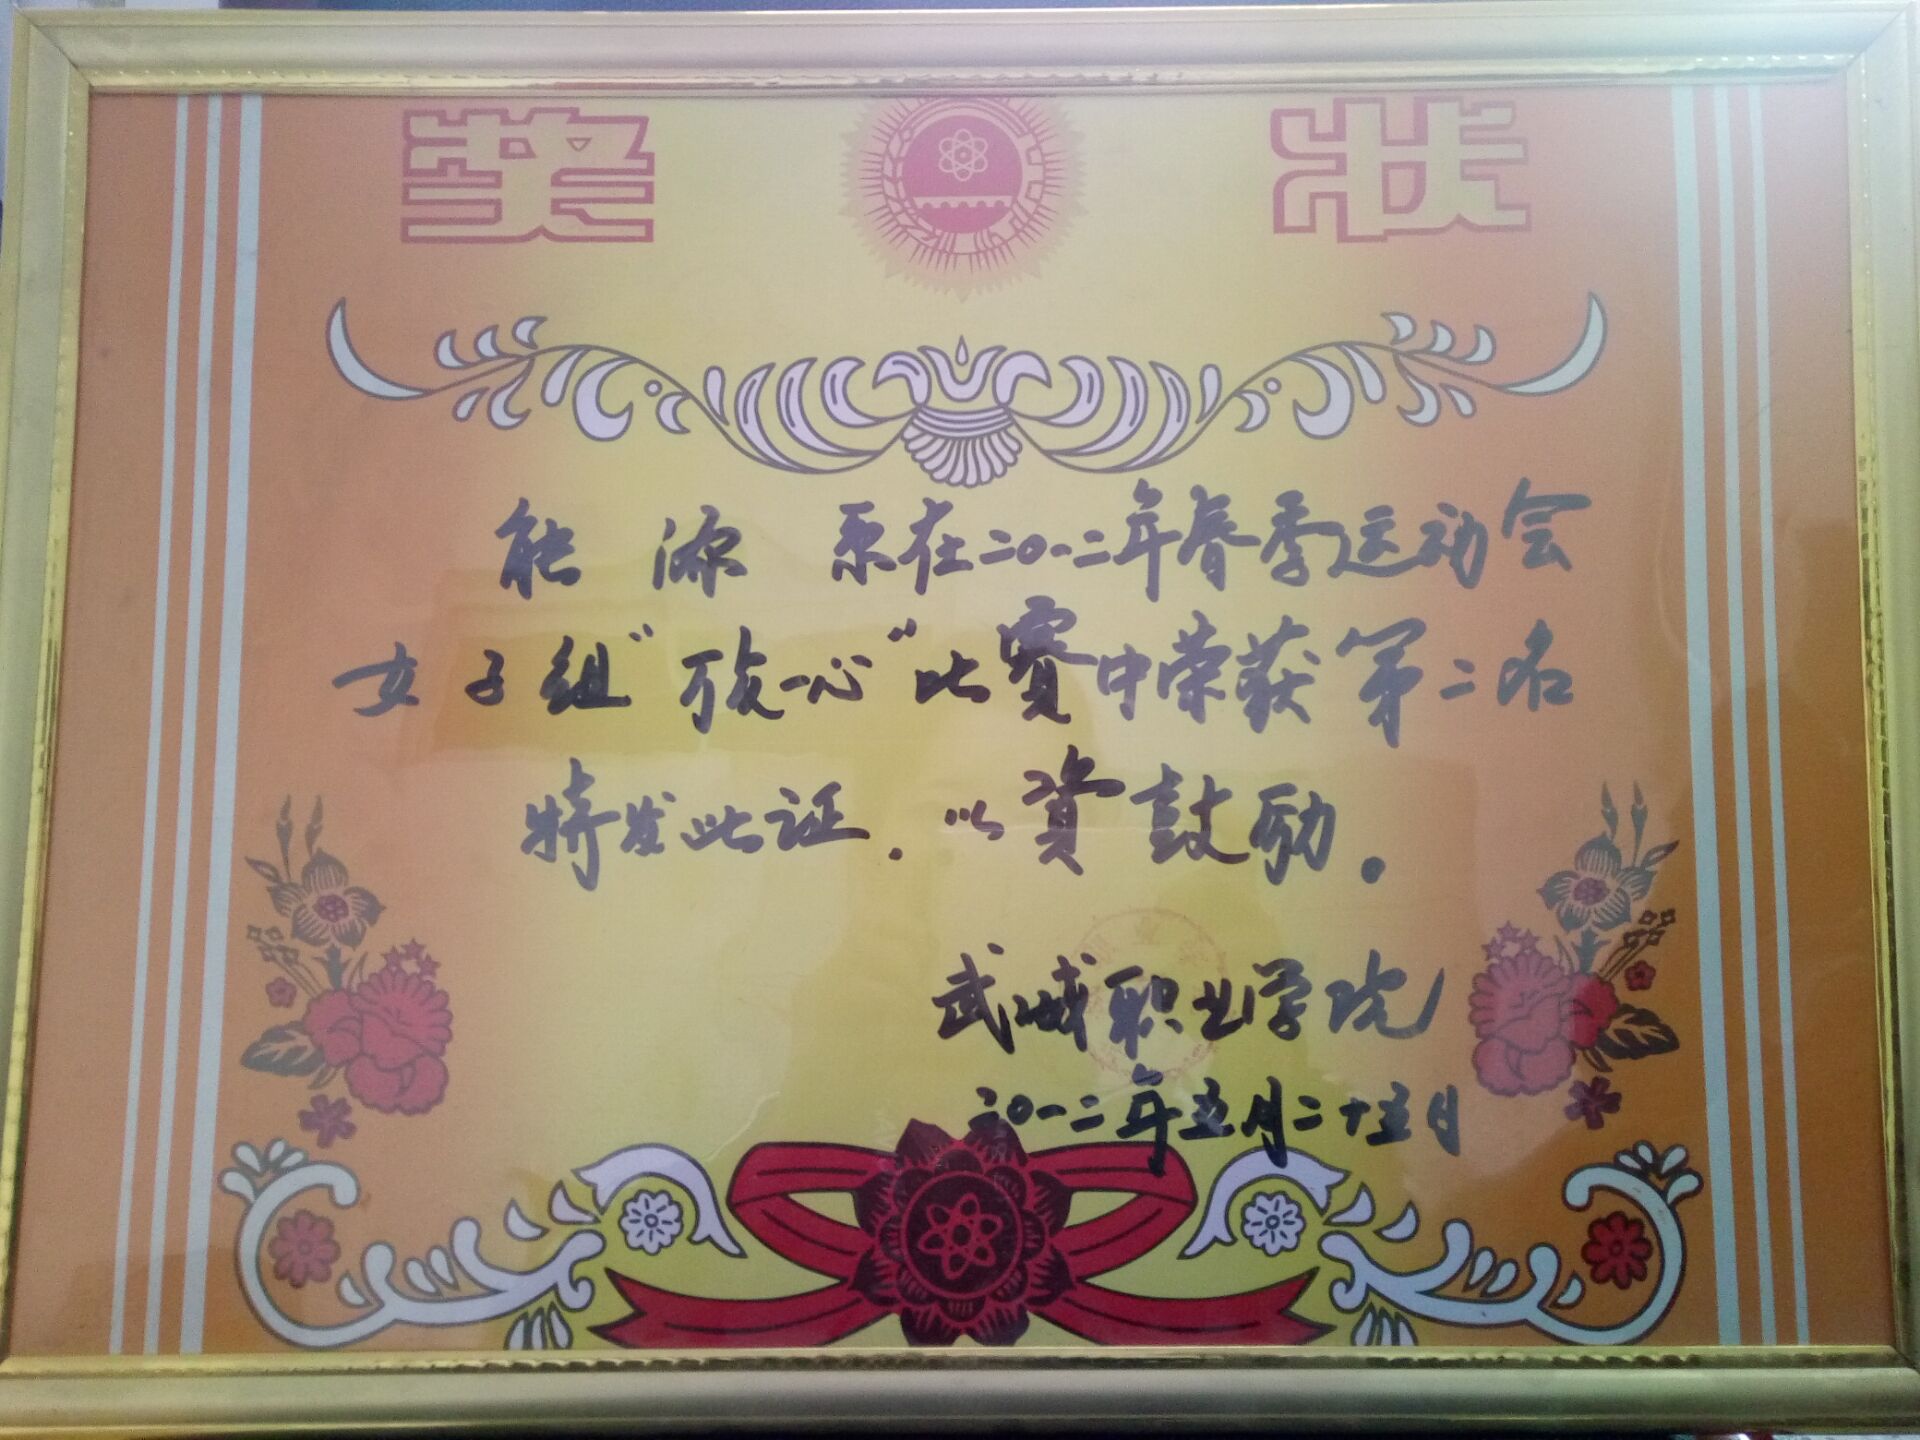 奖 状
能 源 系在二〇一二年春季运动会
女子组“万众一心”比赛中荣获第二名
特发此证.以资鼓励.
武威职业学院
二〇一二年五月二十五日